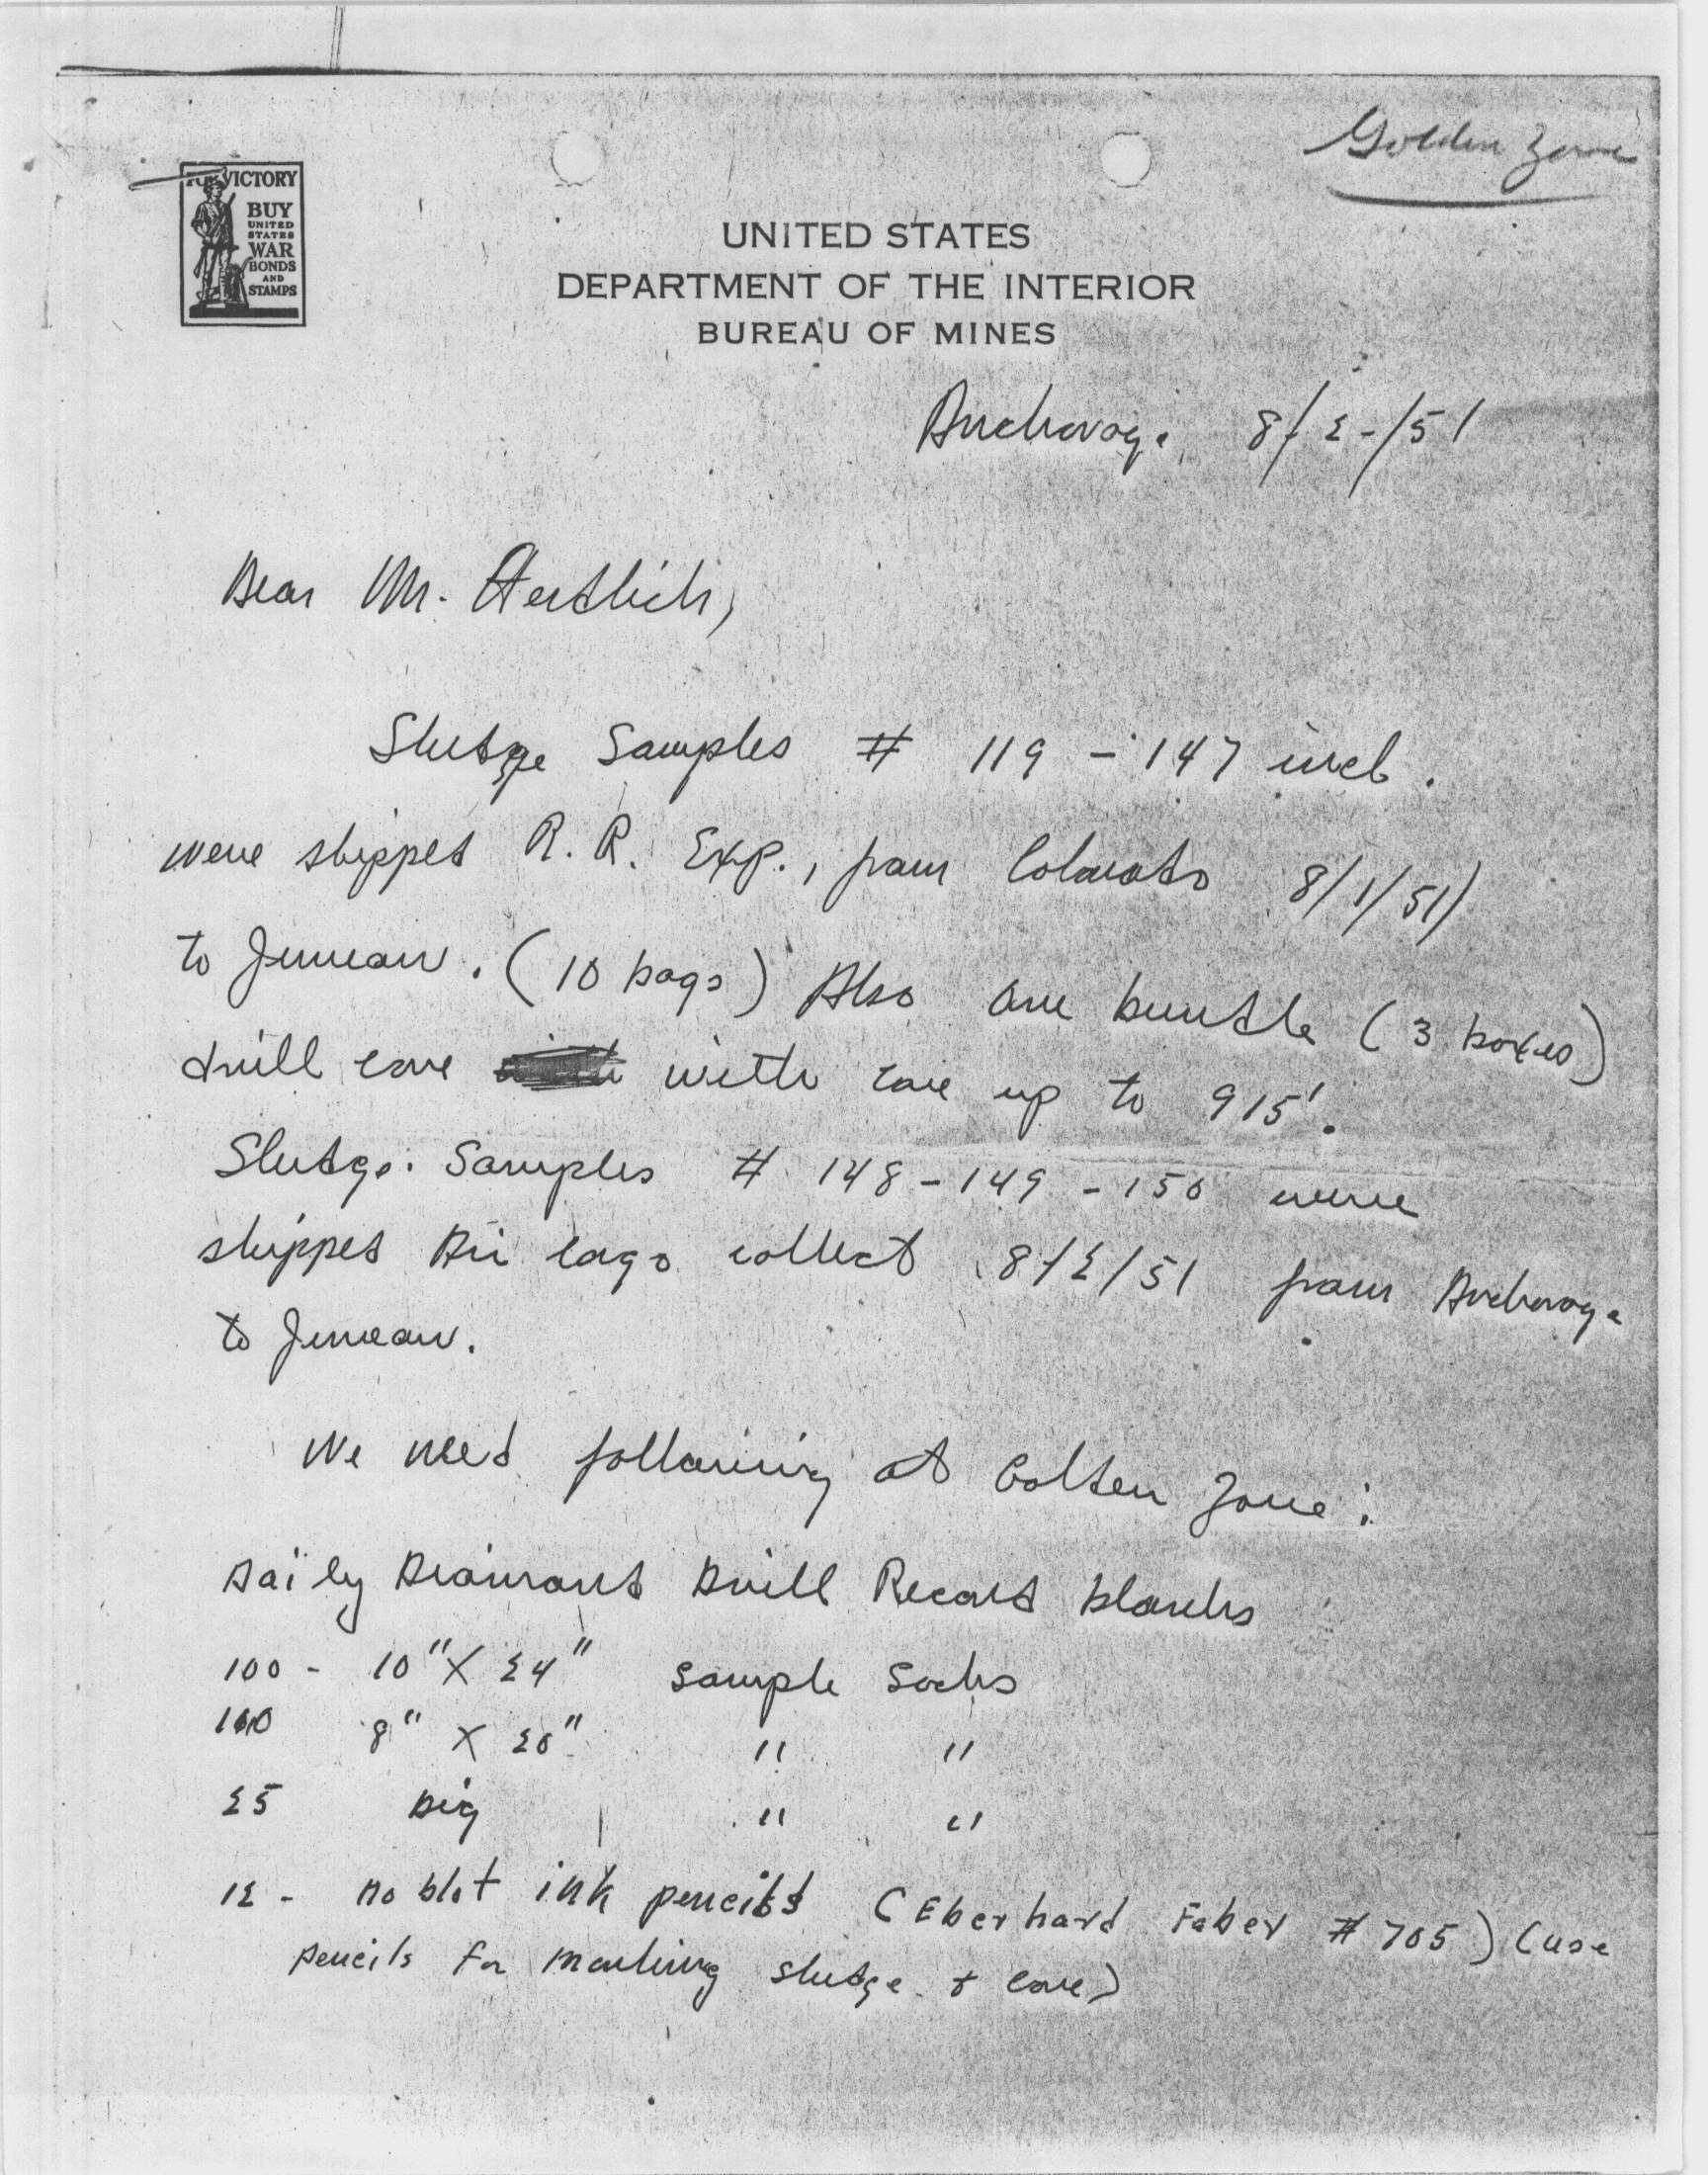 Golden Zone
FOR VICTORY
BUY
UNITED
STATES
WAR
BONDS
AND
STAMPS
UNITED STATES
DEPARTMENT OF THE INTERIOR
BUREAU OF MINES
Anchorage 8/2-/51
Dear Mr.
Sludge Samples # 119 - 147 incl.
were shipped R.R. Exp., from Colorado 8/1/51)
to Juneau. (10 bags) Also one bundle (3 boxes)
drill core with core up to 915'.
Sludge Samples # 148-149-150 were
shipped Air Cargo collect 8/2/51 from Anchorage
to Juneau.
We need following at Golden Zone:
Daily Diamond Drill Record blanks
100 - 10" X 24" Sample Sacks
100 8" X 20" " "
25 Big " "
12 - no blot ink pencils (Eberhard Faber #705) (use
pencils for marking sludge & core)